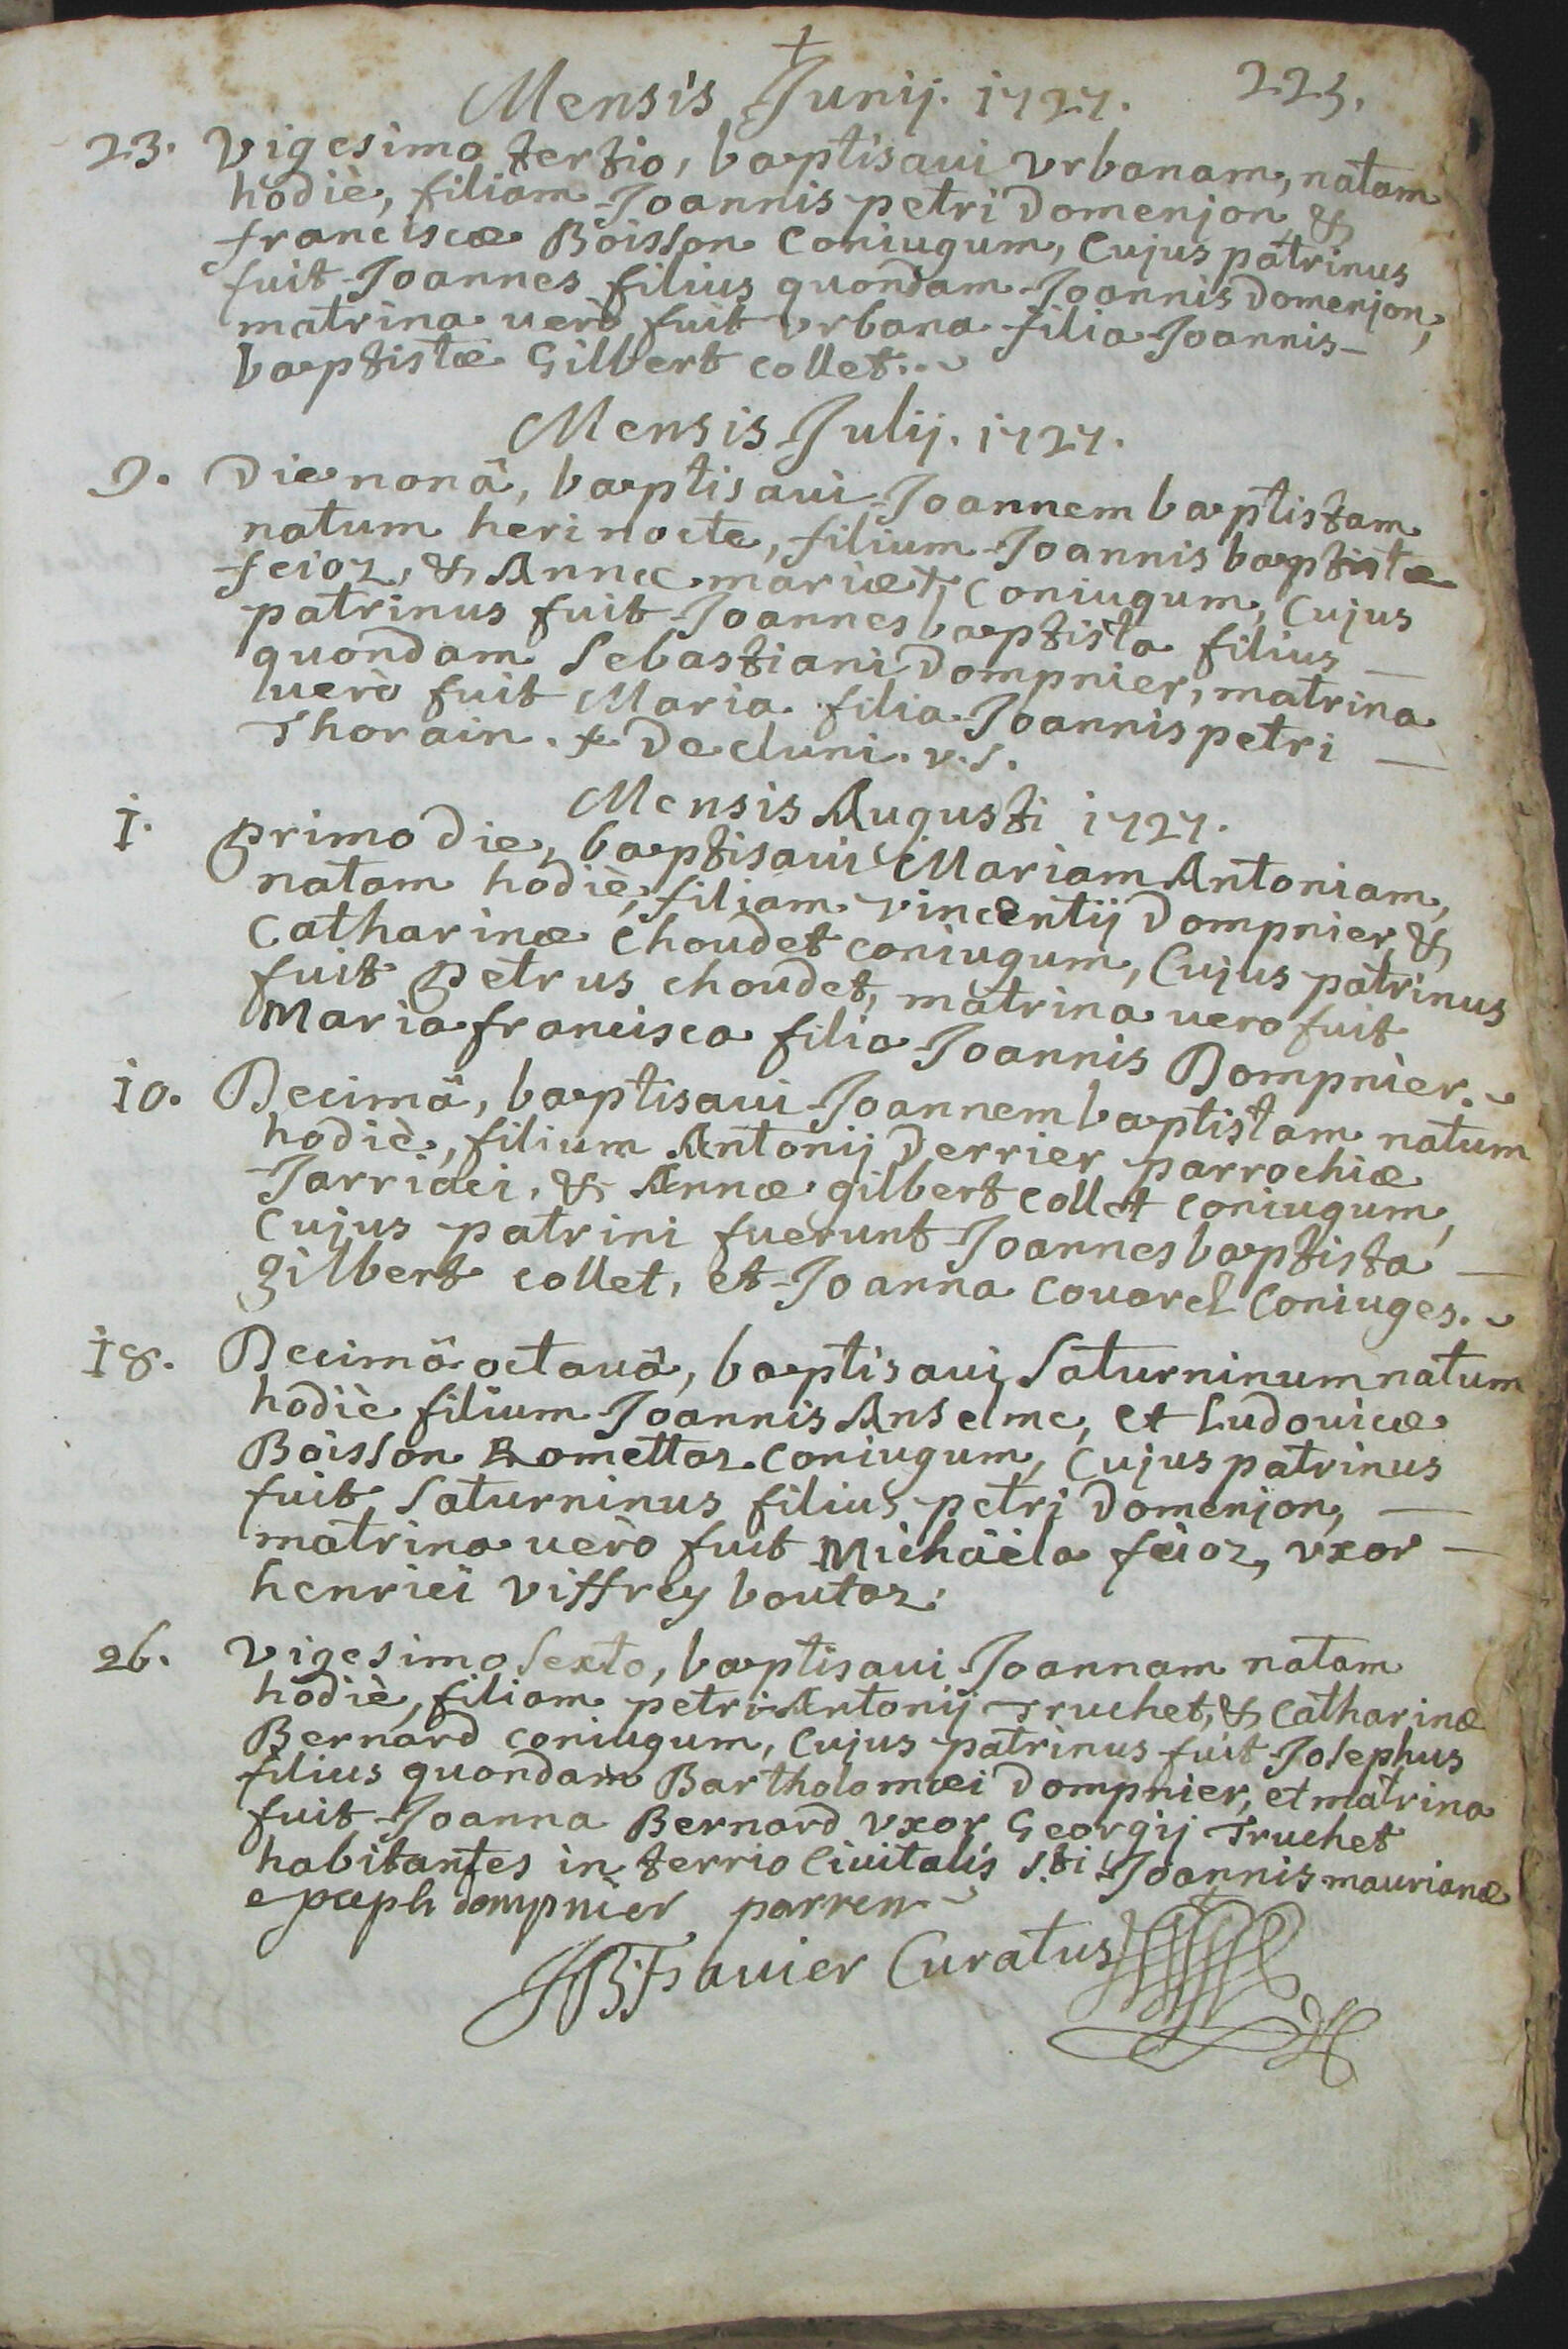 +
Mensis Junij. 1727. 223.
23. Vigesimo tertio, baptisaui Vrbanam, natam
hodiè, filiam Joannis petri Domenjon, &
franciscæ Boisson Coniugum, Cujus patrinus
fuit Joannes filius quondam Joannis Domenjon,
matrina uerò fuit Vrbana filia Joannis
baptistæ Gilbert collet.
Mensis Julij. 1727.
9. Die nonâ, baptisaui Joannem baptistam
natum heri nocte, filium Joannis baptistæ
feioz, & Annæ mariæ + Coniugum, Cujus
patrinus fuit Joannes baptista filius
quondam Sebastiani Dompnier, matrina
uerò fuit Maria filia Joannis petri
Thorain. + De cluni. v.s.
Mensis Augusti 1727.
1. primo die, baptisaui Mariam Antoniam,
natam hodiè, filiam vincentij Dompnier, &
Catharinæ Choudet coniugum, Cujus patrinus
fuit petrus choudet, matrina uero fuit
Maria francisca filia Joannis Dompnier.
10. Decimâ, baptisaui Joannem baptistam natum
hodiè, filium Antonij Derrier parrochiæ
Jarriaci, & Annæ gilbert collet coniugum,
Cujus patrini fuerunt Joannes baptista
gilbert collet, et Joanna Couarel Coniuges.
18. Decimâ octauâ, baptisaui Saturninum natum
hodiè filium Joannis Anselme, et Ludouicæ
Boisson Romettaz Coniugum, Cujus patrinus
fuit Saturninus filius petri Domenjon,
matrina uerò fuit Michäela feioz, vxor
henrici Viffrey boutaz.
26. Vigesimo Sexto, baptisaui Joannam natam
hodiè, filiam petri Antonij Truchet, & Catharinæ
Bernard coniugum, Cujus patrinus fuit Josephus
filius quondam Bartholomæi Dompnier, et matrina
fuit Joanna Bernard vxor Georgij Truchet
habitantes in terrio Ciuitatis S.ti Joannis maurianæ
dompnier parren
Curatus